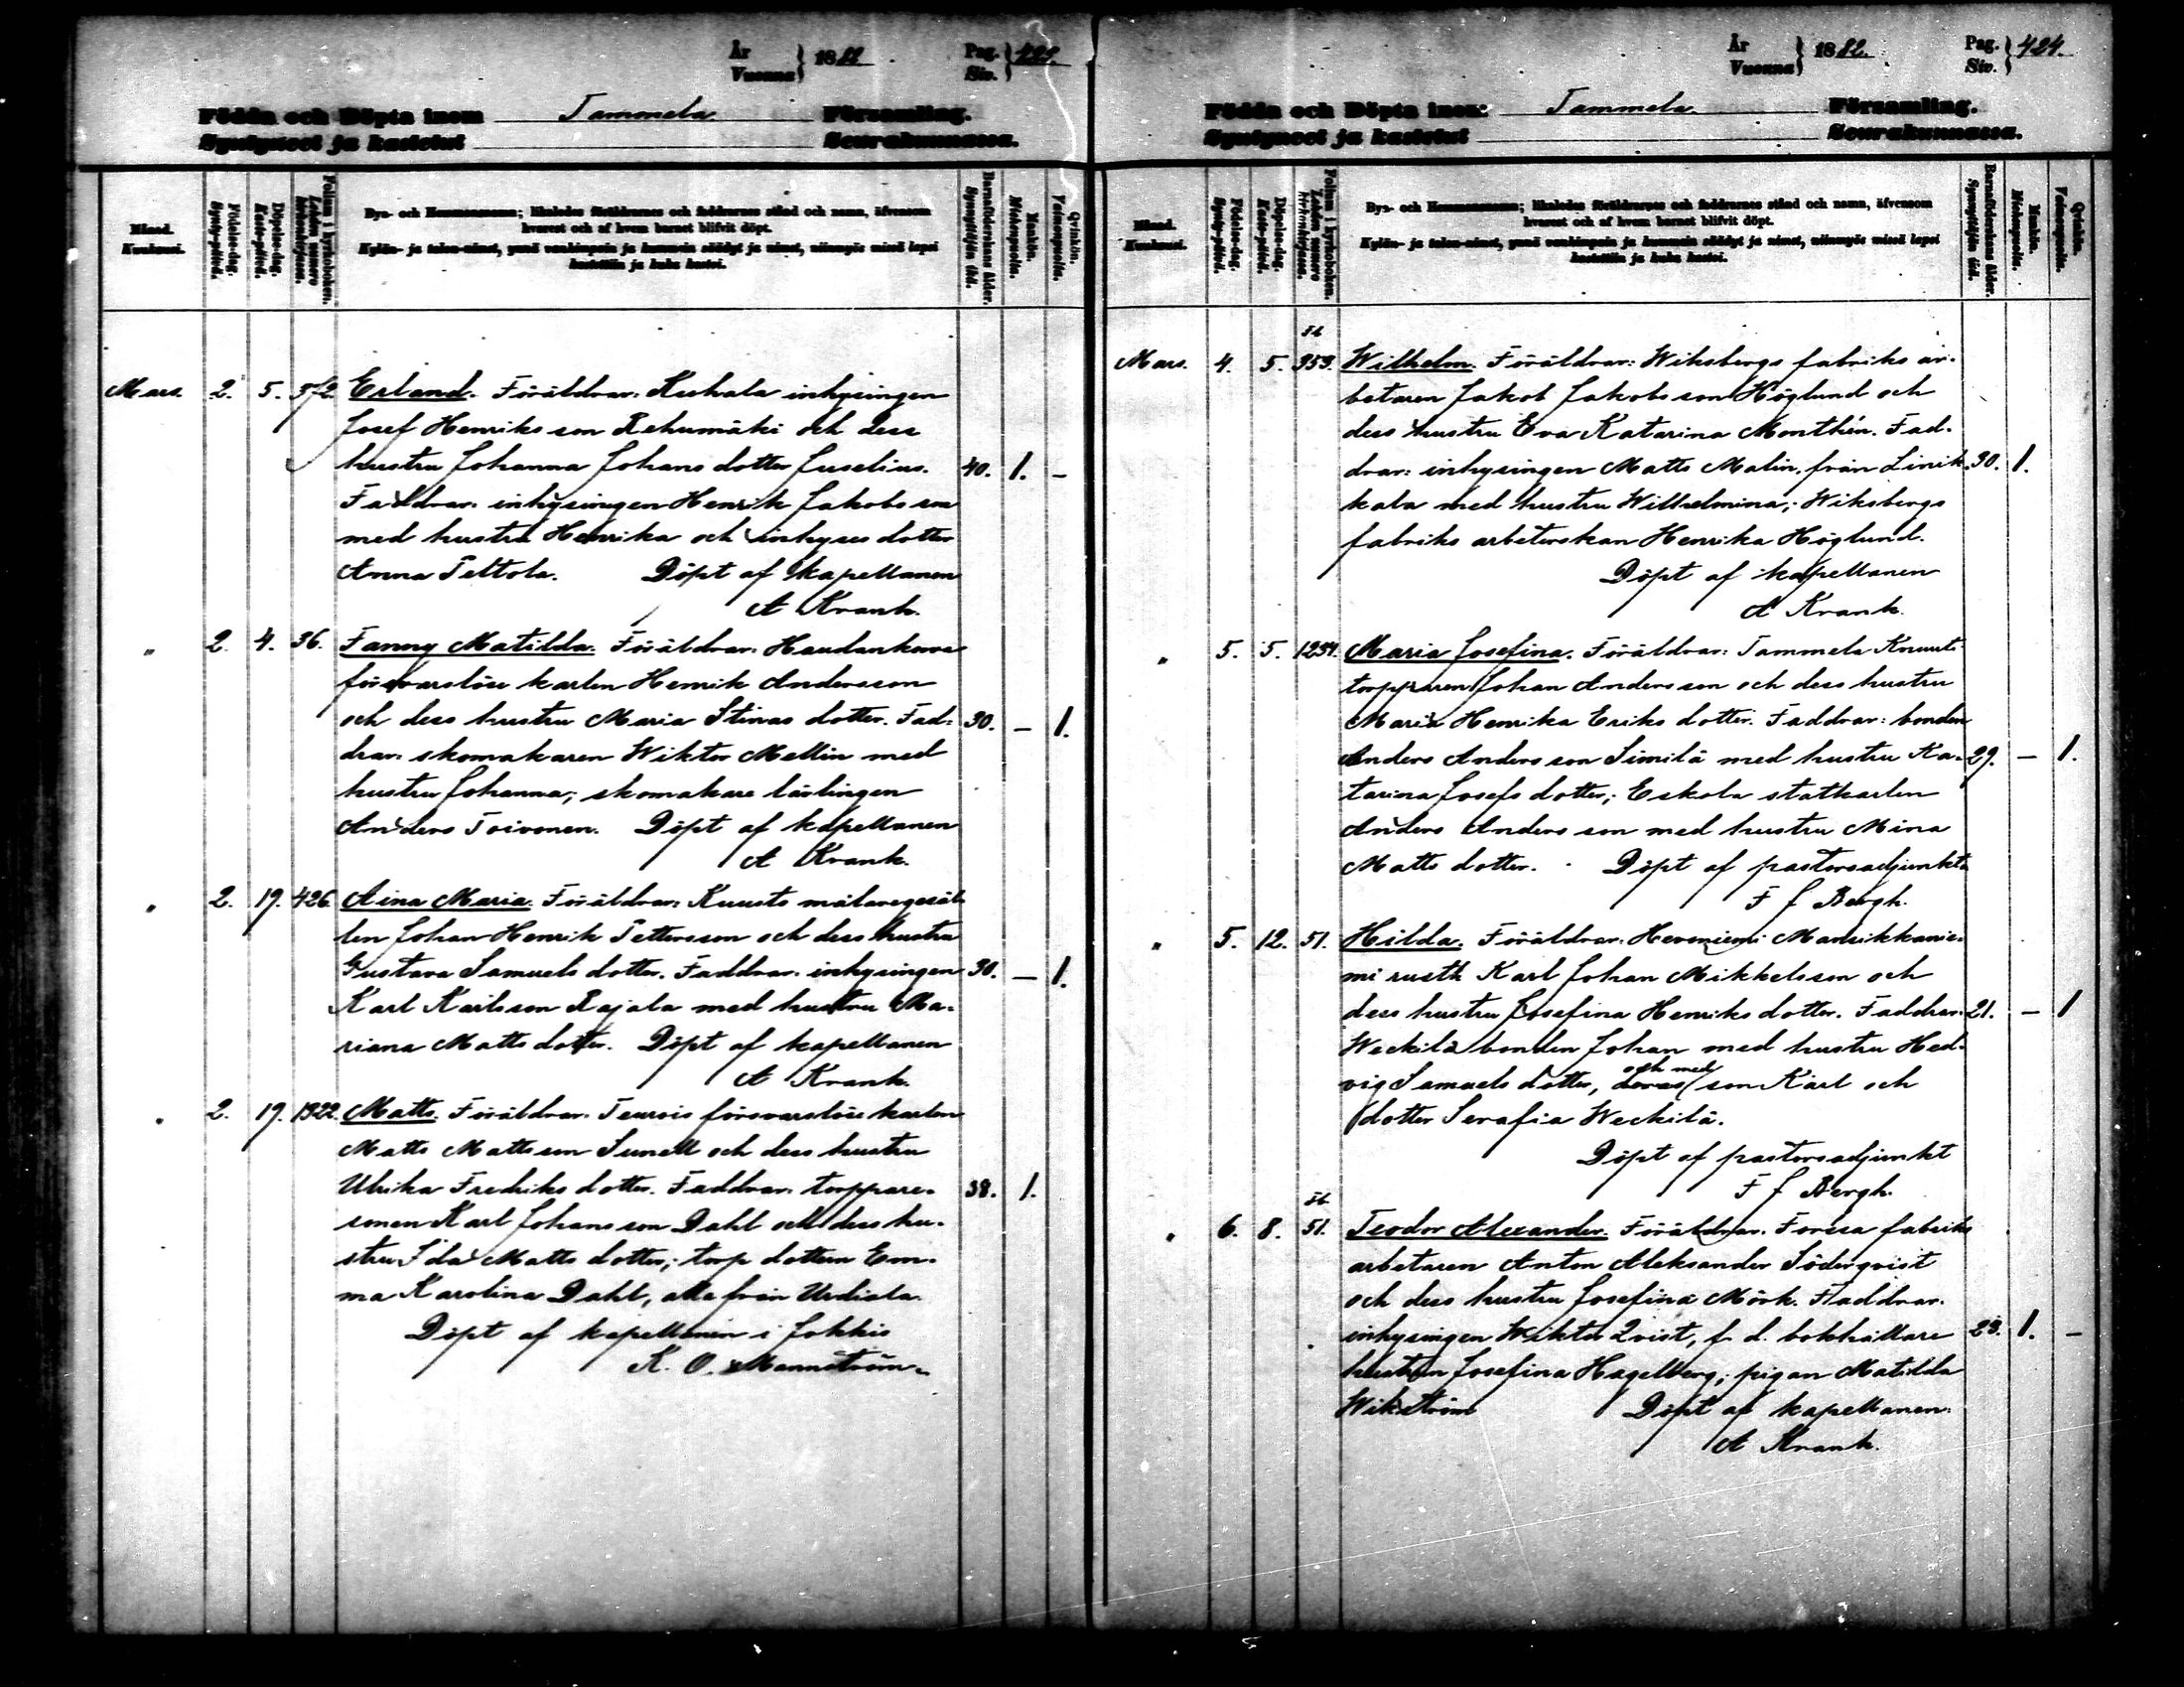 År
Vuonna } 1882. Pag.
Siv. }
Födda och Döpta inom Tammela Församling.
Syntyneet ja kastetut Seurakunnassa.
Månad.
Kuukausi.
Födelse-dag.
Synty-päivä.
Döpelse-dag.
Kaste-päivä.
Folium i kyrkoboken.
Lehden numero kirkonkirjassa.
Bys- och Hemmansnamn; likaledes föräldrarnes och faddrarnes stånd och namn, äfvensom
hvarest och af hvem barnet blifvit döpt.
Kylän- ja talon-nimet, ynnä vanhimpain ja kummein säädyt ja nimet, niinmyös missä lapsi
kastettiin ja kuka kastoi.
Barnaföderskans ålder.
Synnyttäjän ikä.
Mankön.
Miehenpuolta.
Qvinkön.
Vaimonpuolta.
Mars. 2. 5. 372 Erland. Föräldrar: Kuhala inhysingen
Josef Henriks son Rehumäki och dess
hustru Johanna Johans dotter Juselius. 40. 1. –
Faddrar: inhysingen Henrik Jakobs son
med hustru Henrika och inhyses dotter
Anna Teltola. Döpt af kapellanen
A Krank.
" 2. 4. 36. Fanny Matilda. Föräldrar: Haudankorva
försvarslöse karlen Henrik Andersson
och dess hustru Maria Stinas dotter. Fad- 30. – 1.
drar: skomakaren Wiktor Mellin med
hustru Johanna; skomakare lärlingen
Anders Toivonen. Döpt af kapellanen
A Krank.
" 2. 19. 426. Aina Maria. Föräldrar: Kuusto målaregesäl-
len Johan Henrik Pettersson och dess hustru
Gustava Samuels dotter. Faddrar: inhysingen 30. – 1.
Karl Karlsson Rajala med hustru Ma-
riana Matts dotter. Döpt af kapellanen
A Krank.
" 2. 19. 1922. Matts. Föräldrar: Teurois försvarslöse karlen
Matts Mattsson Sunell och dess hustru
Ulrika Fredriks dotter. Faddrar: torppare- 38. 1.
sonen Karl Johans son Dahl och dess hu-
stru Ida Matts dotter; torp dottern Em-
ma Karolina Dahl, alla från Urdiala.
Döpt af kapellanen i Jokkis
K. O. Mannström.
År
Vuonna } 1882. Pag.
Siv. } 424.
Födda och Döpta inom Tammela. Församling.
Syntyneet ja kastetut Seurakunnassa.
Månad.
Kuukausi.
Födelse-dag.
Synty-päivä.
Döpelse-dag.
Kaste-päivä.
Folium i kyrkoboken.
Lehden numero kirkonkirjassa.
Bys- och Hemmansnamn; likaledes föräldrarnes och faddrarnes stånd och namn, äfvensom
hvarest och af hvem barnet blifvit döpt.
Kylän- ja talon-nimet, ynnä vanhimpain ja kummein säädyt ja nimet, niinmyös missä lapsi
kastettiin ja kuka kastoi.
Barnaföderskans ålder.
Synnyttäjän ikä.
Mankön.
Miehenpuolta.
Qvinkön.
Vaimonpuolta.
Mars. 4. 5. 353. Wilhelm. Föräldrar: Wiksbergs fabriks ar-
betaren Jakob Jakobs son Höglund och
dess hustru Eva Katarina Monthén. Fad-
drar: inhysingen Matts Malin, från Linik- 30. 1.
kala med hustru Wilhelmina; Wiksbergs
fabriks arbeterskan Henrika Höglund.
Döpt af kapellanen
A Krank.
" 5. 5. 1254. Maria Josefina. Föräldrar: Tammela Knuuti-
torpparen Johan Anders son och dess hustru
Maria Henrika Eriks dotter. Faddrar: bonden
Anders Anders son Similä med hustru Ka- 29. – 1.
tarina Josefs dotter; Eskola statkarlen
Anders Anders son med hustru Mina
Matts dotter. Döpt af pastorsadjunkten
F J Bergh.
" 5. 12. 51. Hilda. Föräldrar: Heveniemi Mansikkanie-
mi rusth. Karl Johan Mikkelsson och
dess hustru Josefina Henriks dotter. Faddrar: 21. – 1
Weckilä bonden Johan med hustru Hed-
vig Samuels dotter, och med son Karl och
dotter Serafia Weckilä.
Döpt af pastorsadjunkt
F J Bergh.
" 6. 8. 51. Teodor Alexander. Föräldrar: Forssa fabriks
arbetaren Anton Aleksander Söderqvist
och dess hustru Josefina Mörk. Faddrar:
inhysingen Wiktor Qvist, f. d. bokhållare 28. 1. –
hustrun Josefina Hagelberg; pigan Matilda
Wikström Döpt af kapellanen
A Krank.